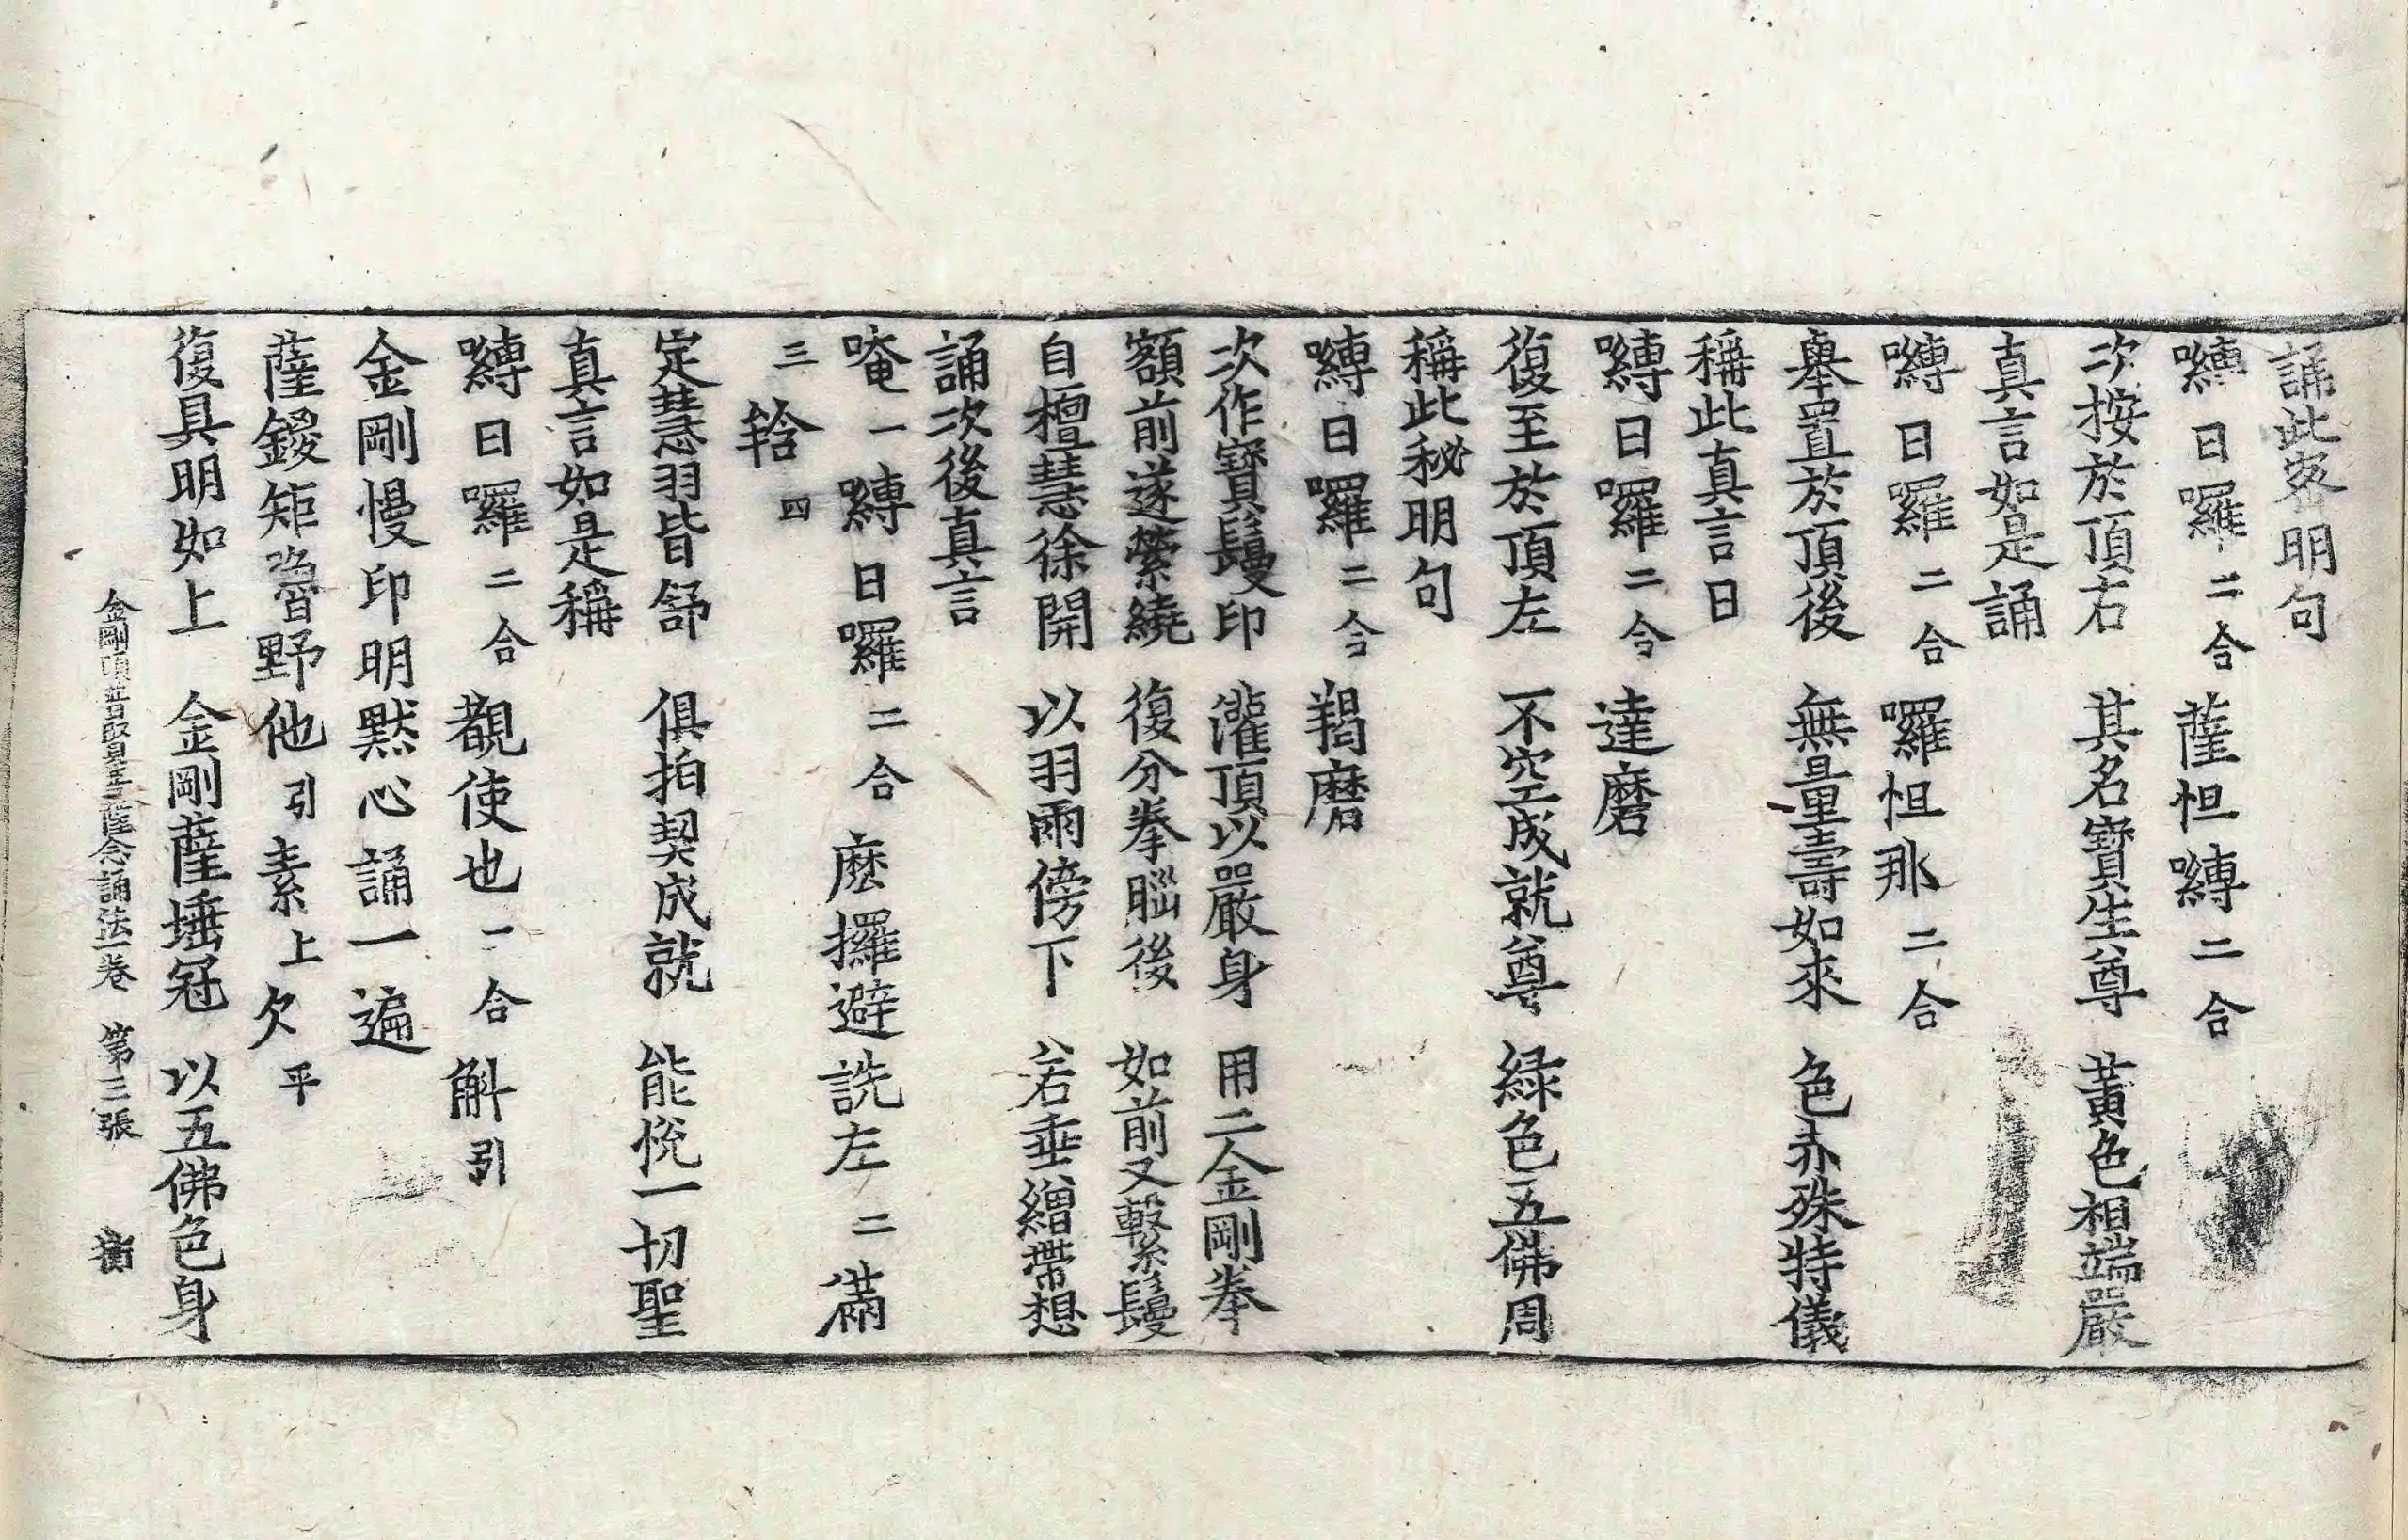 誦此密明句
嚩日囉二合薩怛嚩二合
次按於頂右 其名寶生尊 黃色相端嚴
真言如是誦
嚩日囉二合囉怛那二合
舉置於頂後 無量壽如來 色赤殊特儀
稱此真言曰
嚩日囉二合達磨
復至於頂左 不空成就尊 綠色五佛周
稱此秘明句
嚩日囉二合羯磨
次作寶鬘印 灌頂以嚴身 用二金剛拳
額前遂縈繞 復分拳腦後 如前又繫鬘
自檀慧徐開 以羽兩傍下 若垂繒帶想
誦次後真言
唵一嚩日囉二合麼攞避詵左二滿
三𤚥四
定慧羽皆舒 俱拍契成就 能悅一切聖
真言如是稱
嚩日囉二合覩使也二合斛引
金剛慢印明默心誦一遍
薩鑁矩嚕野他引素上欠平
復具明如上 金剛薩埵冠 以五佛色身
金剛頂普賢菩薩念誦法一卷 第三張 衡